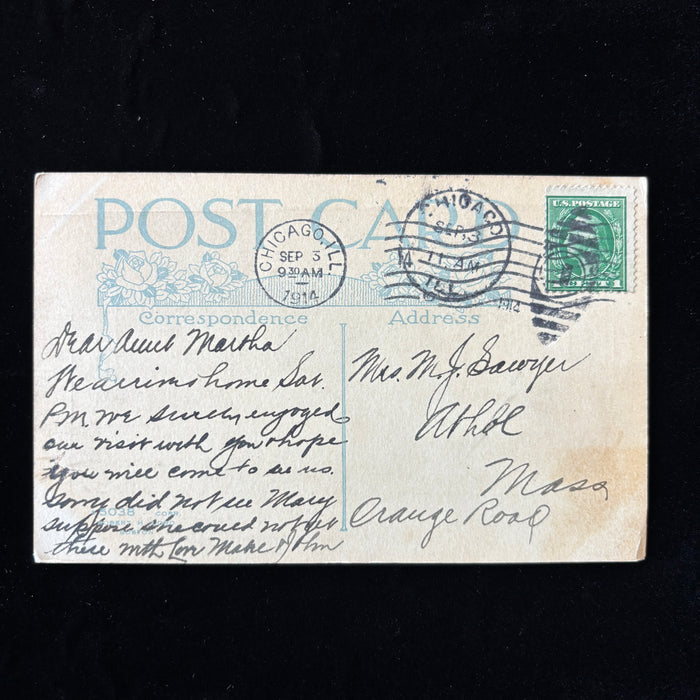 POST CARD
CHICAGO, ILL.
SEP 3
9 30 AM
1914
CHICAGO
SEP 3
11 AM
ILL.
1914
U.S. POSTAGE
1
Correspondence
Address
Dear Aunt Martha
We arrived home Sat.
P.M. We surely enjoyed
our visit with you & hope
you will come to see us.
Sorry did not see Mary
suppose she could not get
there with Love Make & John
Mrs. M. J. Sawyer
Athol
Mass
Orange Road